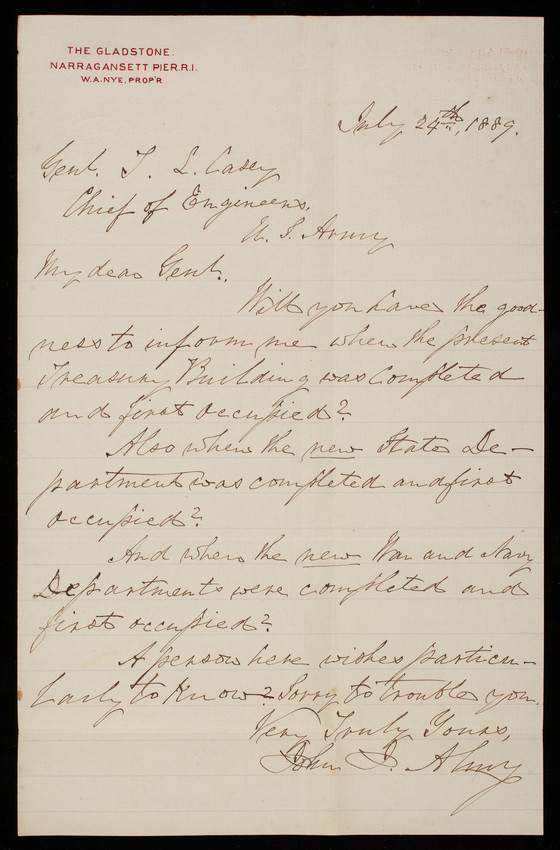 THE GLADSTONE.
NARRAGANSETT PIER. R.I.
W.A. NYE, PROP'R
July 24th, 1889.
Genl. T. L. Casey
Chief of Engineers,
U. S. Army
My dear Genl.,
Will you have the good-
ness to inform me when the present
Treasury Building was completed
and first occupied?
Also when the new State De-
partment was completed and first
occupied?
And when the new War and Navy
Departments were completed and
first occupied?
A person here wishes particu-
larly to know? Sorry to trouble you.
Very Truly Yours,
John J. Almy